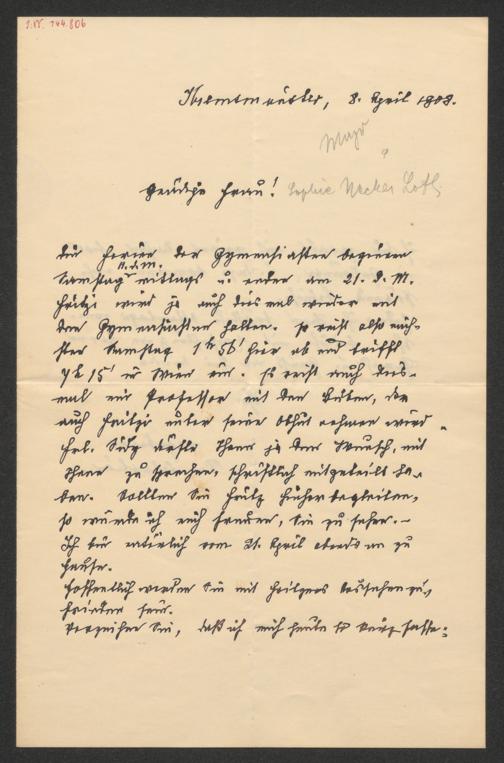 I.N. 144.806
Kremsmünster, 8. April 1908.
Mayr
?
Gnädige Frau! Sophie Necker Loth
Die Ferien der Gymnasiasten beginnen
Samstag n. d. M. mittags u. enden am 21. d. M.
Fritzi wird ja auch diesmal wieder mit
den Gymnasiasten halten. Er reist also näch-
sten Samstag 1h 56' hier ab und trifft
7h 15' in Wien ein. Es reist auch dies-
mal ein Professor mit den Buben, der
auch Fritzi unter seine Obhut nehmen wird.
Frl. Sidy dürfte Ihnen ja den Wunsch, mit
Ihnen zu sprechen, schriftlich mitgeteilt ha-
ben. Sollten Sie Fritzi hieher begleiten,
so würde ich mich freuen, Sie zu sehen. –
Ich bin natürlich vom 21. April abends an zu
Hause.
Hoffentlich werden Sie mit Fritzis Aussehen zu-
frieden sein.
Verzeihen Sie, daß ich mich heute so kurz fasse: